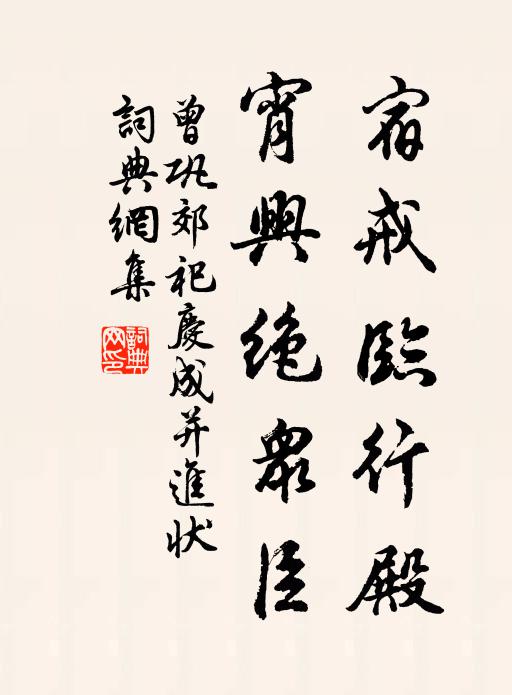 宿戒臨行殿
宵興絶衆臣
曾巩郊祀慶成并進狀
詞典網集
詞典網印